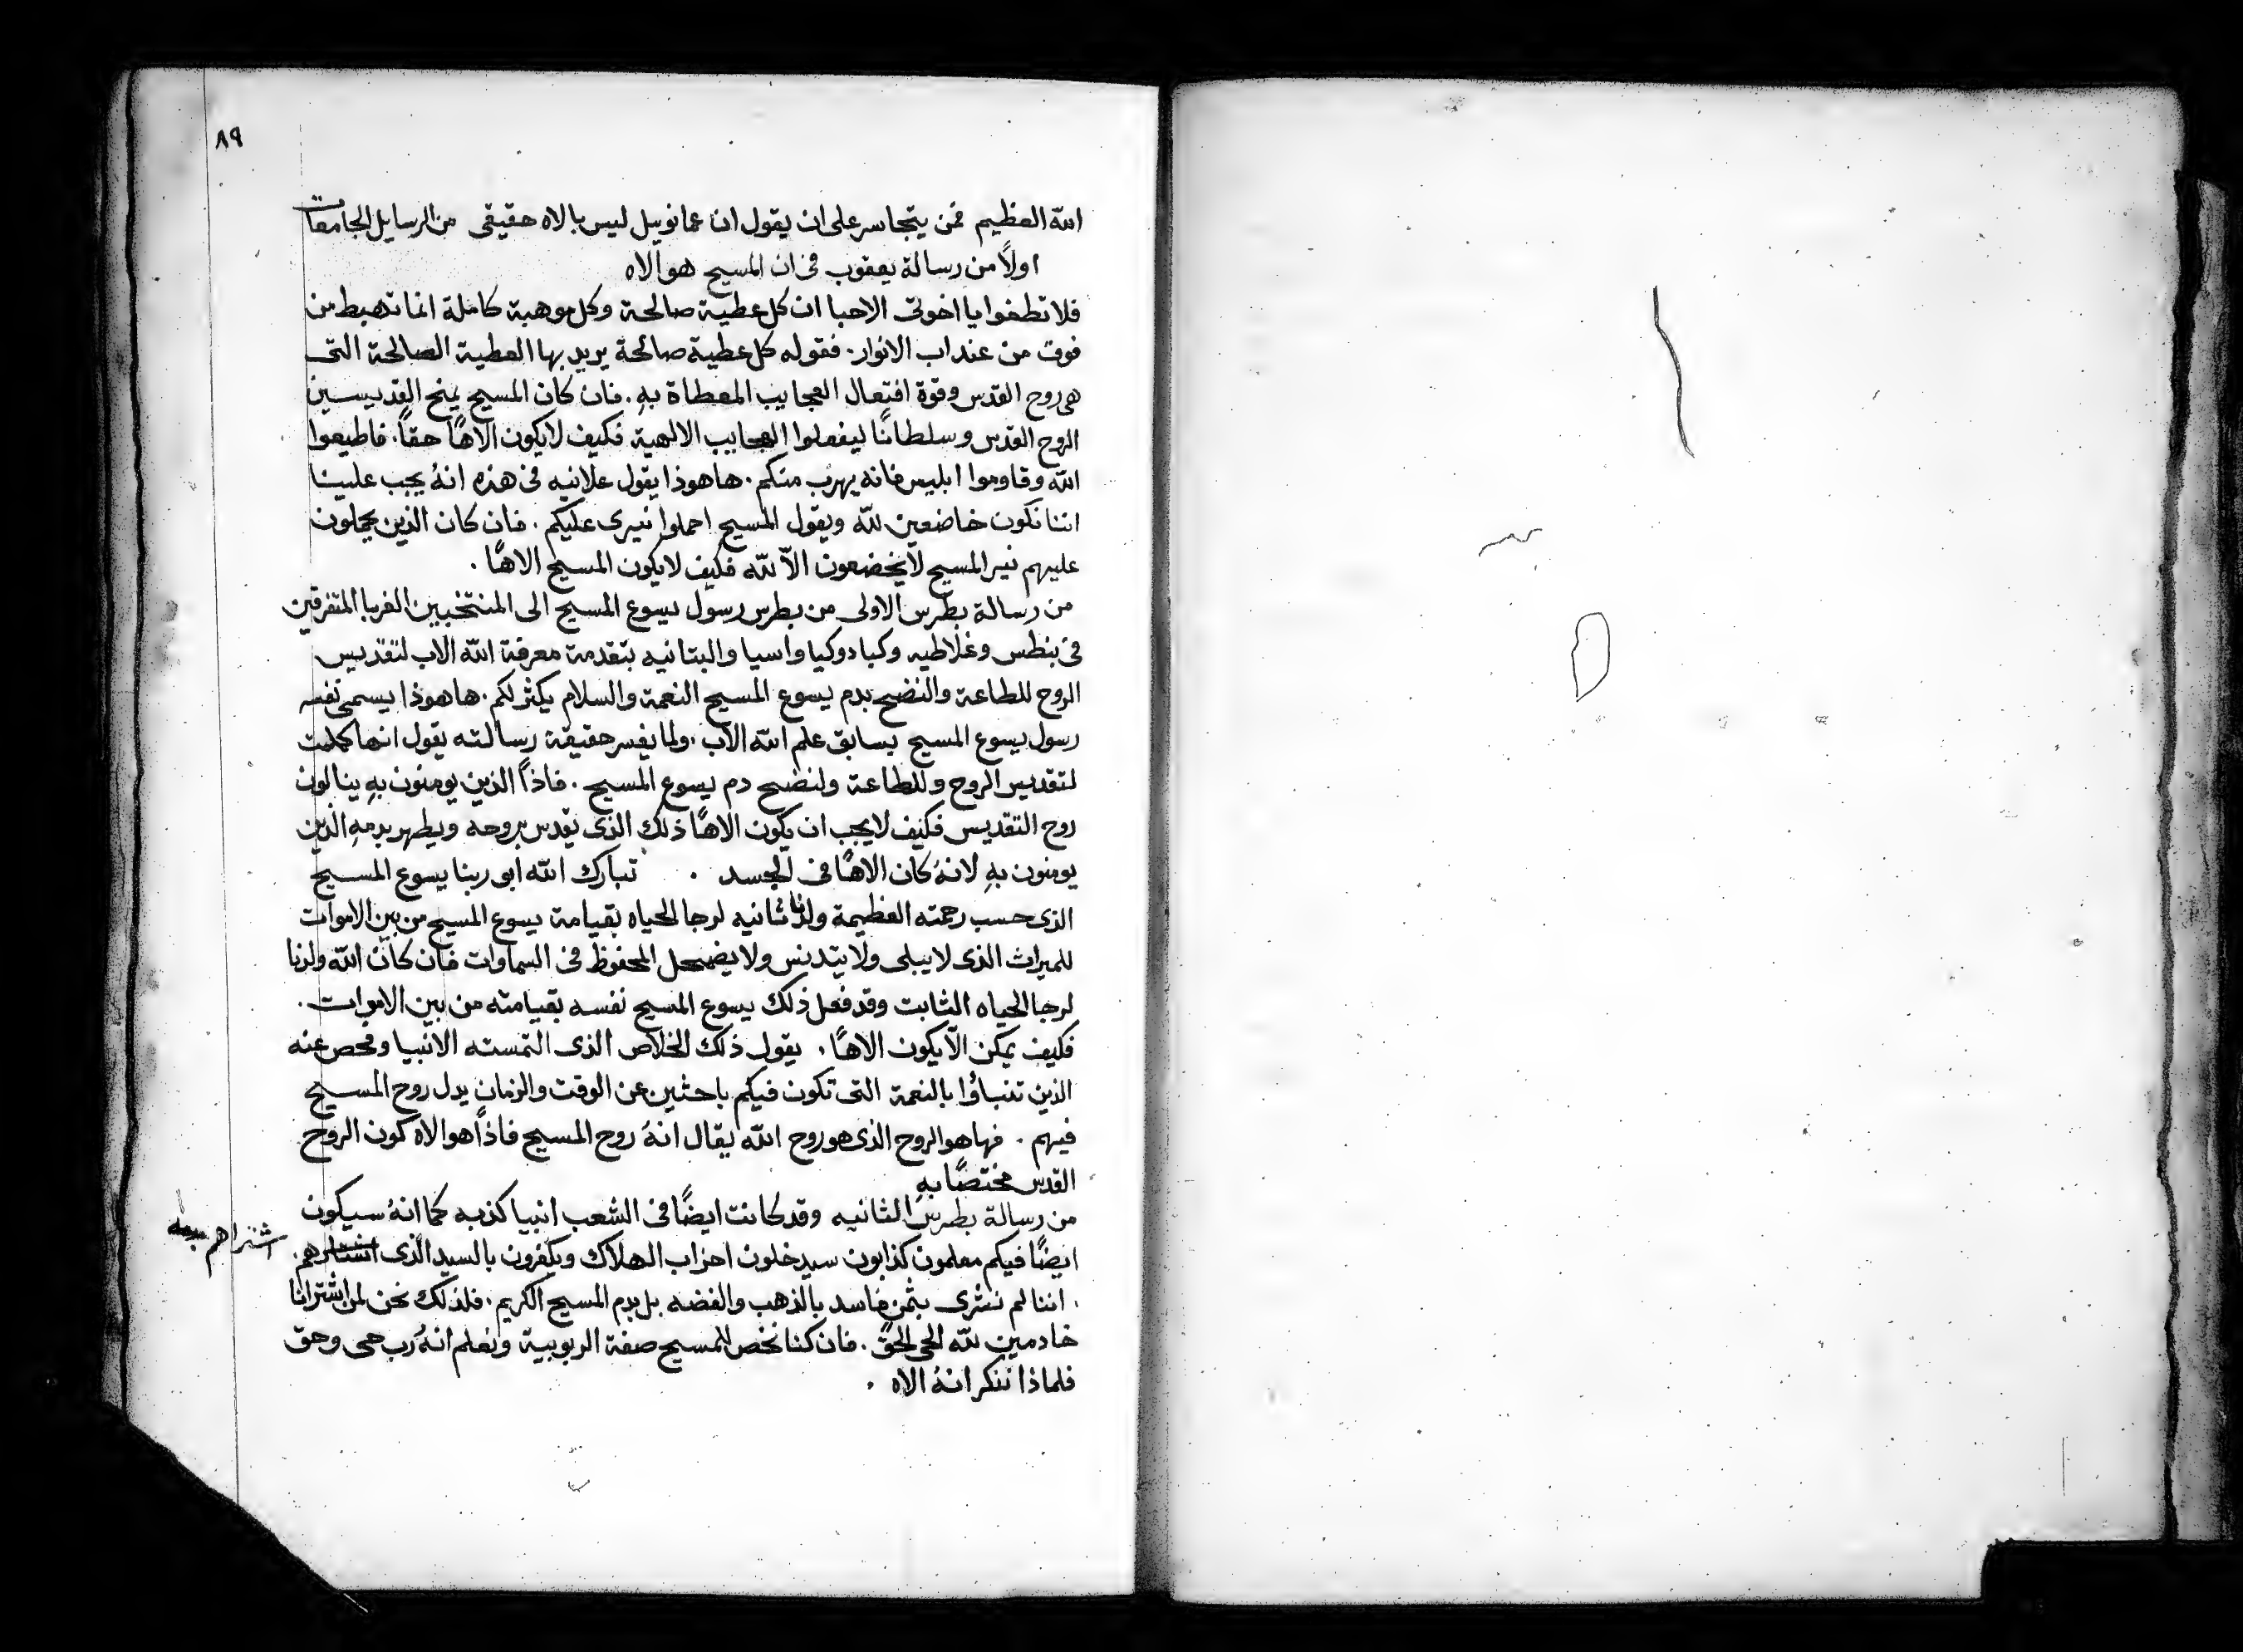 ٨٩
الله العظيم فمن يتجاسر على ان يقول ان عمانوييل ليس بالاه حقيقى من الرسايل الجامعات
اولاً من رسالة يعقوب فى ان المسيح هو الاه
فلا تطغوا يا اخوتى الاحبا ان كل عطية صالحة وكل موهبة كاملة انما تهبط من
فوق من عند اب الانوار. فقوله كل عطية صالحة يريد بها العطية الصالحة التى
هى روح القدس وقوة افتعال العجايب المعطاة بهِ. فان كان المسيح يمنح القديسين
الروح القدس وسلطانًا ليفعلوا العجايب الالهية فكيف لا يكون الاهًا حقاً. فاطيعوا
الله وقاوموا ابليس فانه يهرب منكم. ها هوذا يقول علانيه فى هذه انهُ يجب علينا
اننا نكون خاضعين لله ويقول المسيح احملوا نيرى عليكم. فان كان الذين يحملون
عليهم نير المسيح لا يخضعون الاّ لله فكيف لا يكون المسيح الاهًا.
من رسالة بطرس الاولى من بطرس رسول يسوع المسيح الى المنتخبين الغربا المتفرقين
فى بنطس وغلاطيه وكبادوكيا واسيا والبتانيه بتقدمة معرفة الله الاب لتقديس
الروح للطاعة والنضح بدم يسوع المسيح النعمة والسلام يكثر لكم. ها هوذا يسمى نفسه
رسول يسوع المسيح بسابق علم الله الاب. ولما يفسر حقيقة رسالته يقول انها كملت
لتقديس الروح وللطاعة ولنضح دم يسوع المسيح. فاذاً الذين يومنون بهِ ينالون
روح التقديس فكيف لا يجب ان يكون الاهًا ذلك الذى يقدس بروحه ويطهر بدمهِ الذين
يومنون بهِ لانهُ كان الاهًا فى الجسد. تبارك الله ابى ربنا يسوع المسيح
الذى حسب رحمته العظيمة ولدنا ثانيه لرجا الحياه بقيامة يسوع المسيح من بين الاموات
للميراث الذى لا يبلى ولا يتدنس ولا يضمحل المحفوظ فى السماوات فان كان الله ولدنا
لرجا الحياه الثابت وقد فعل ذلك يسوع المسيح نفسه بقيامته من بين الاموات.
فكيف يمكن الاّ يكون الاهًا. يقول ذلك الخلاص الذى التمسته الانبيا وفحص عنه
الذين تنباؤا بالنعمة التى تكون فيكم باحثين عن الوقت والزمان يدل روح المسيح
فيهم. فها هو الروح الذى هو روح الله يقال انهُ روح المسيح فاذاً هو الاه كون الروح
القدس مختصًا بهِ
من رسالة بطرس الثانيه وقد كانت ايضًا فى الشعب انبيا كذبه كما انهُ سيكون
ايضًا فيكم معلمون كذابون سيدخلون احزاب الهلاك ويكفرون بالسيد الذى
اشتراهم
اننا لم نشترى بثمن فاسد بالذهب والفضه بل بدم المسيح الكريم. فلذلك نحن لمن اشترانا
خادمين لله الحى الحق. فان كنا نخص للمسيح صفة الربوبية ونعلم انهُ رب حى وحق
فلماذا ننكر انهُ الاه.